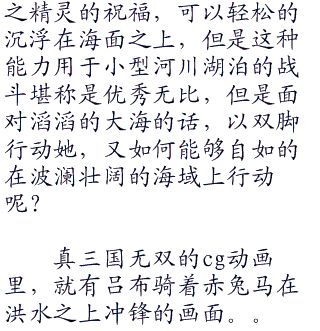 之精灵的祝福，可以轻松的
沉浮在海面之上，但是这种
能力用于小型河川湖泊的战
斗堪称是优秀无比，但是面
对滔滔的大海的话，以双脚
行动她，又如何能够自如的
在波澜壮阔的海域上行动
呢？
真三国无双的cg动画
里，就有吕布骑着赤兔马在
洪水之上冲锋的画面。。